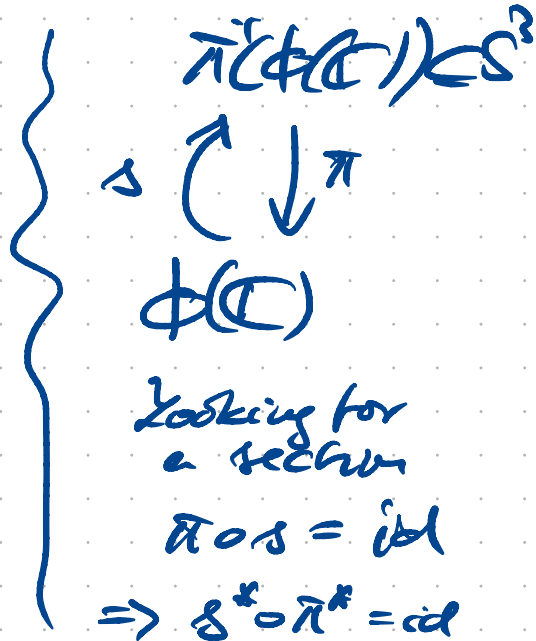 π⁻¹(ϕ(ℂ)) ⊂ S³
s π
ϕ(ℂ)
Looking for
a section
π∘s = id
⇒ s*∘π* = id